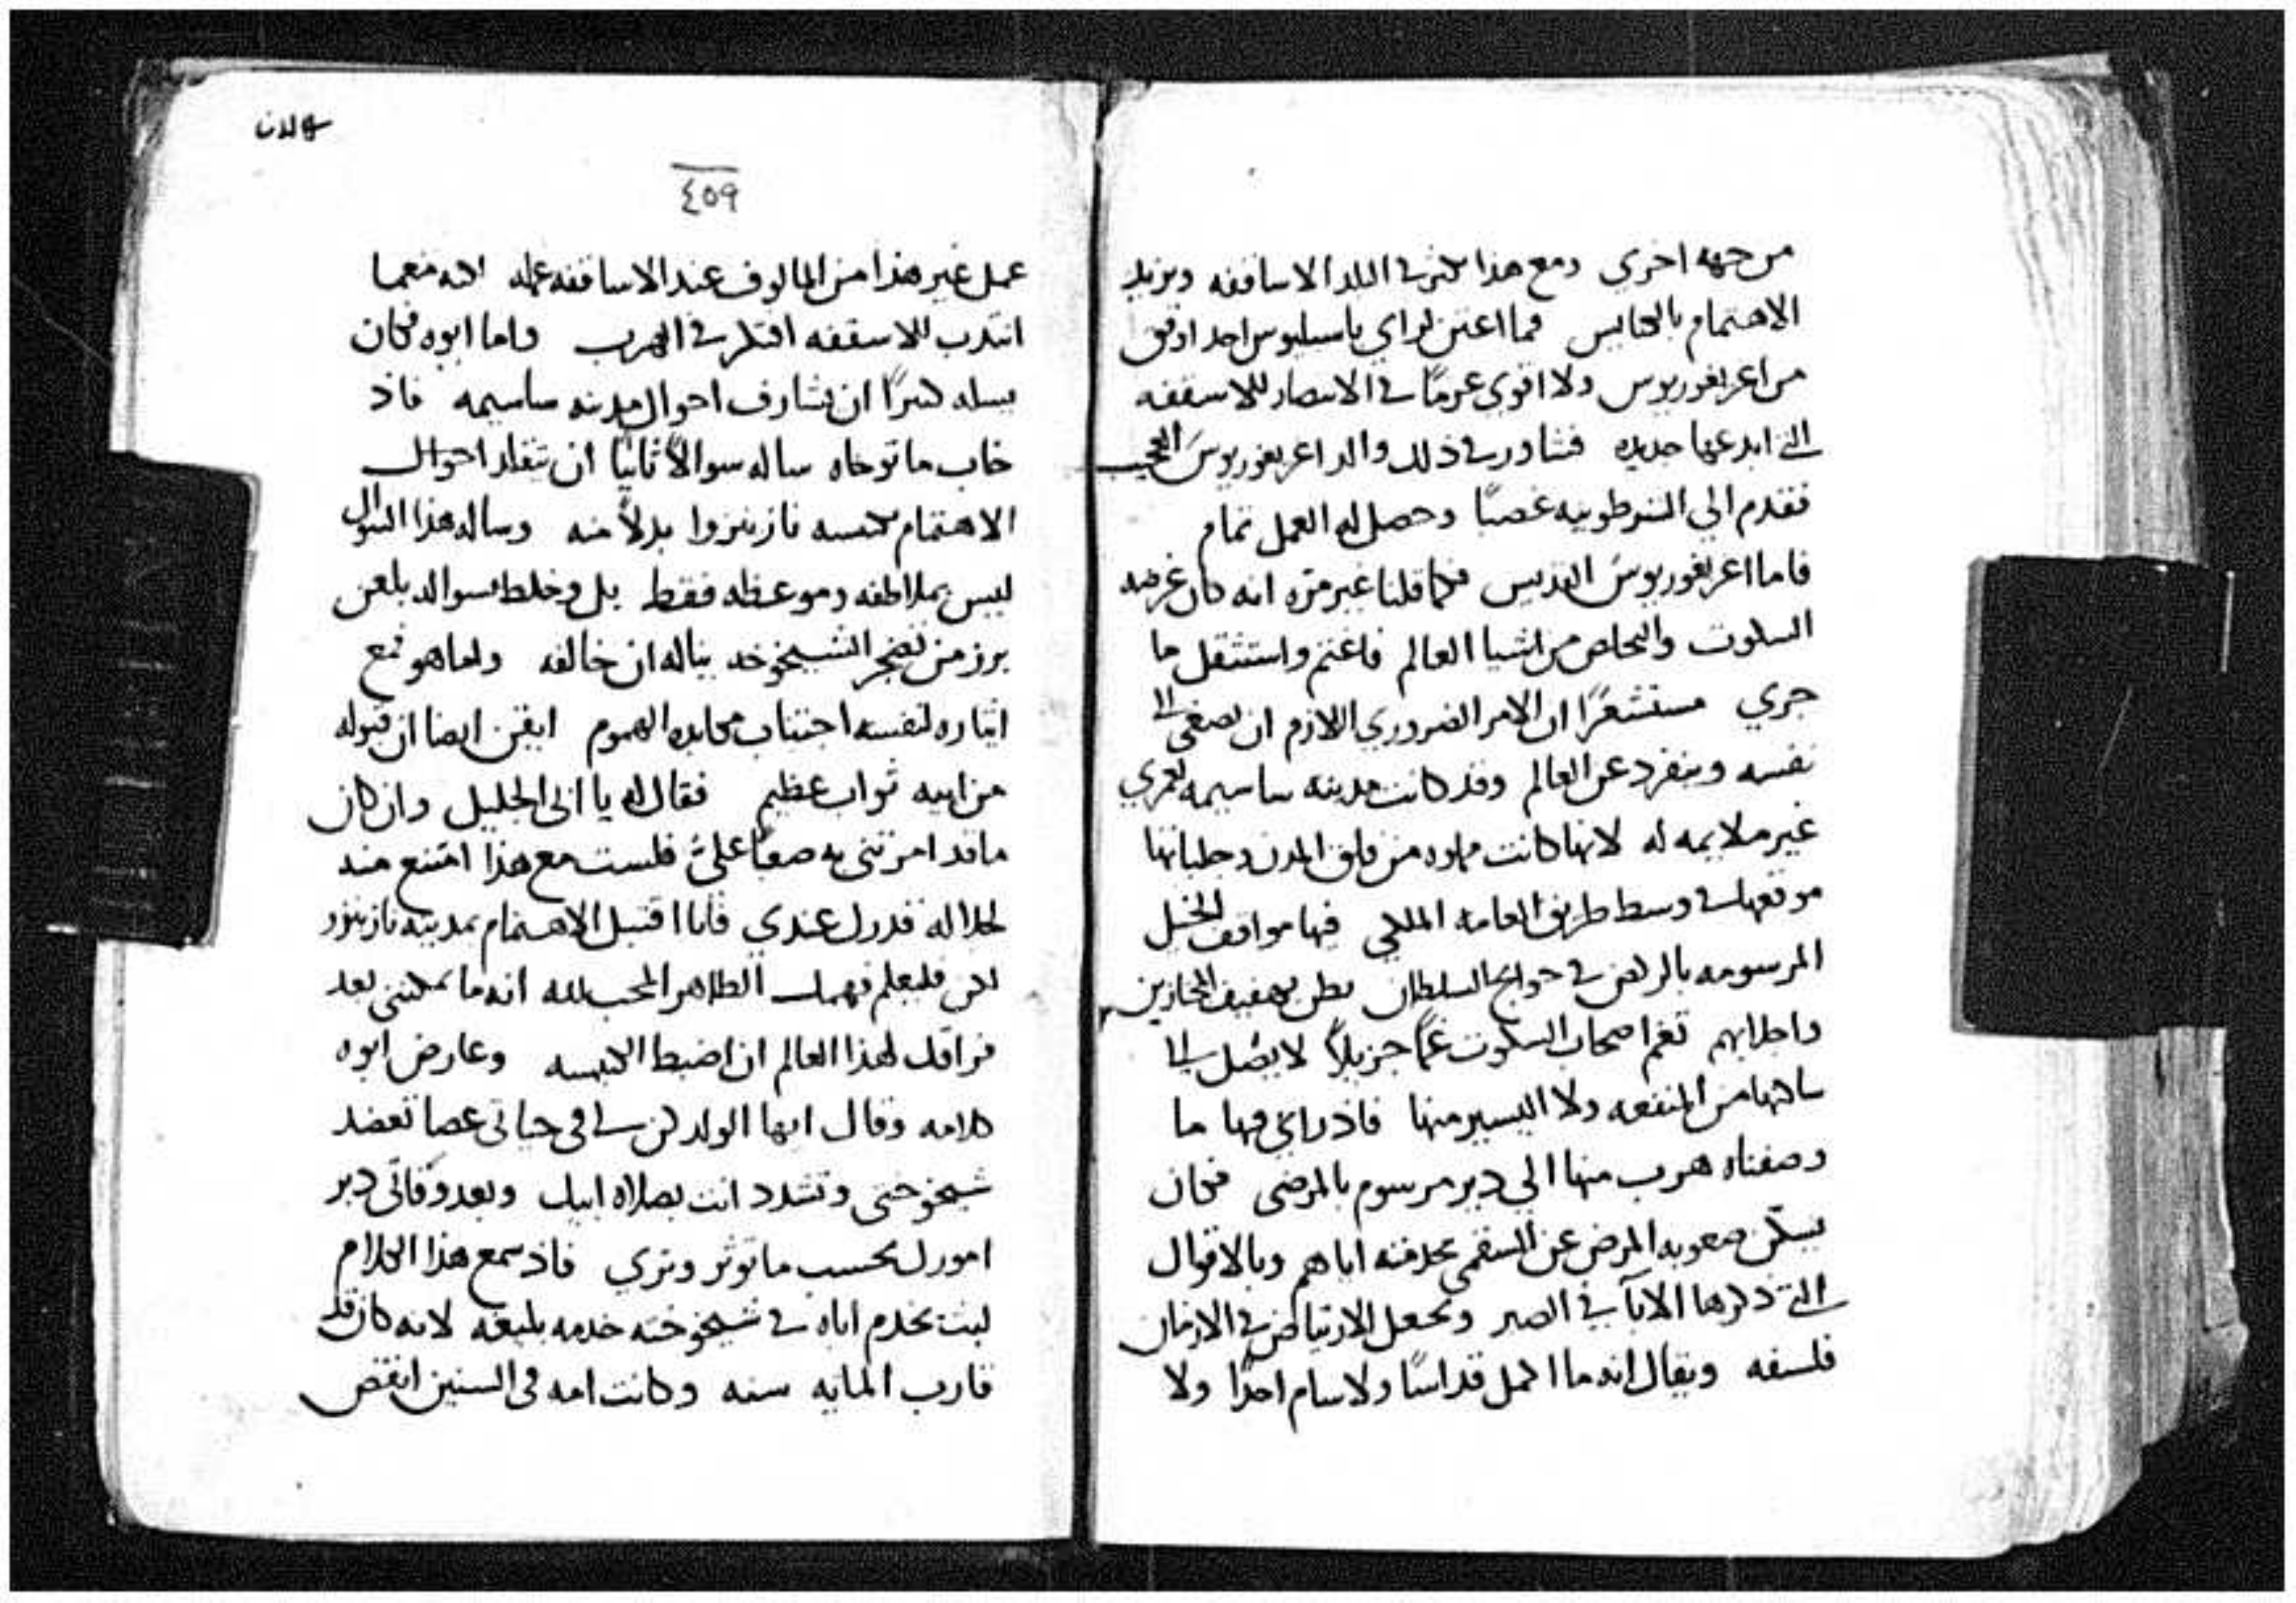 من جهه اخري ومع هذا تكثر في البلد الاساقفه ويزيد
الاهتمام بالكنايس فما اعتن لراي باسيليوس احد اوفق
من اغريغوريوس ولا اقوى عزمًا في الانتصار للاسقفه
التي ابدعها جديده فشاور في ذلك والد اغريغوريوس العجيب
فقدم الي الشرطونيه غصبًا وحصل له العمل تمام
فاما اغريغوريوس القديس فكما قلنا غير مره انه كان غرضه
السكوت والتخلص من اشيا العالم فاغتم واستثقل ما
جري مستشعرًا ان الامر الضروري اللازم ان يصغي الى
نفسه وينفرد عن العالم وقد كانت مدينه ساسيمه لعمري
غير ملايمه له لانها كانت مملوه من قلق المدن وجلباتها
موقعها في وسط طريق العامه الملكي فيها مواقف الخيل
المرسومه بالركض في حوايج السلطان تطن بهفيف المجازين
واجلابهم تغم اصحاب السكوت غمًا جزيلًا لا يصل الى
ساكنها من المنفعه ولا اليسير منها فاذ راي فيها ما
وصفناه هرب منها الي دير مرسوم بالمرضى فكان
يسكن صعوبه المرض عن السقمى بخدمته اياهم وبالاقوال
التي ذكرها الابآ في الصبر ويجعل الارتياض في الازمان
فلسفه ويقال انه ما اكمل قداسًا ولا سام احدًا ولا
٤٥٩
عمل غير هذا من المالوف عند الاساقفه عمله لانه معما
انتدب للاسقفه افتكر في الهرب واما ابوه فكان
يسله كثيرًا ان يشارف احوال مدينه ساسيمه فاذ
خاب ما توخاه ساله سوالًا ثانيًا ان يتقلد احوال
الاهتمام بكنيسه نازينزوا بدلًا منه وساله هذا السوال
ليس بملاطفه وموعظه فقط بل وخلط بسواله بلعن
برز من تضجر الشيخوخه يناله ان خالفه واما هو فمع
ايثاره لنفسه اجتناب مكابده الهموم ايقن ايضا ان قبوله
من ابيه ثواب عظيم فقال له يا ابي الجليل وان كان
ما قد امرتني به صعبًا عليّ فلست مع هذا امتنع منه
لجلاله قدرك عندي فانا اقتبل الاهتمام بمدينه نازينزو
لكن فليعلم فهمك الطاهر المحب لله انه ما يمكنني بعد
فراقك لهذا العالم ان اضبط الكنيسه وعارض ابوه
كلامه وقال ايها الولد كن لي في حياتي عصا تعضد
شيخوختي وتشدد انت بصلاه ابيك وبعد وفاتي دبر
امورك بحسب ما توثر وتري فاذ سمع هذا الكلام
لبث يخدم اباه في شيخوخته خدمه بليغه لانه كان قد
قارب المايه سنه وكانت امه في السنين انقص